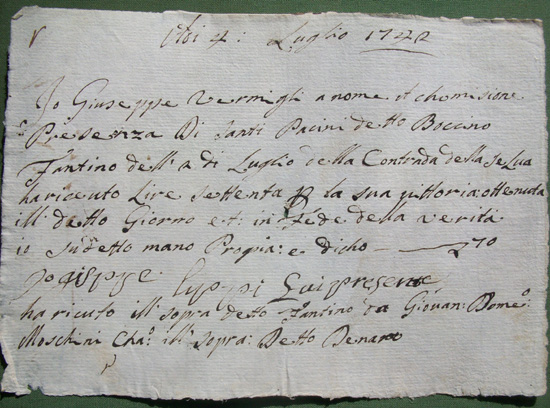 Adi 4: Luglio 1742
Io Giuseppe Vermigli a nome et chomisione
e Presenza Di Santi Pacini detto Boccino
Fantino dell'a di Luglio della Contrada della Selua
ha riceuto Lire settenta p la sua vittoria ottenuta
ill detto Giorno et: in Fede della verità
io Sudetto mano Propria: e dicho — 70
Io fui presene
ha riceuto ill sopra detto Fantino da Giovan: Dome:
Moschini Cha: ill sopra: Detto Denaro